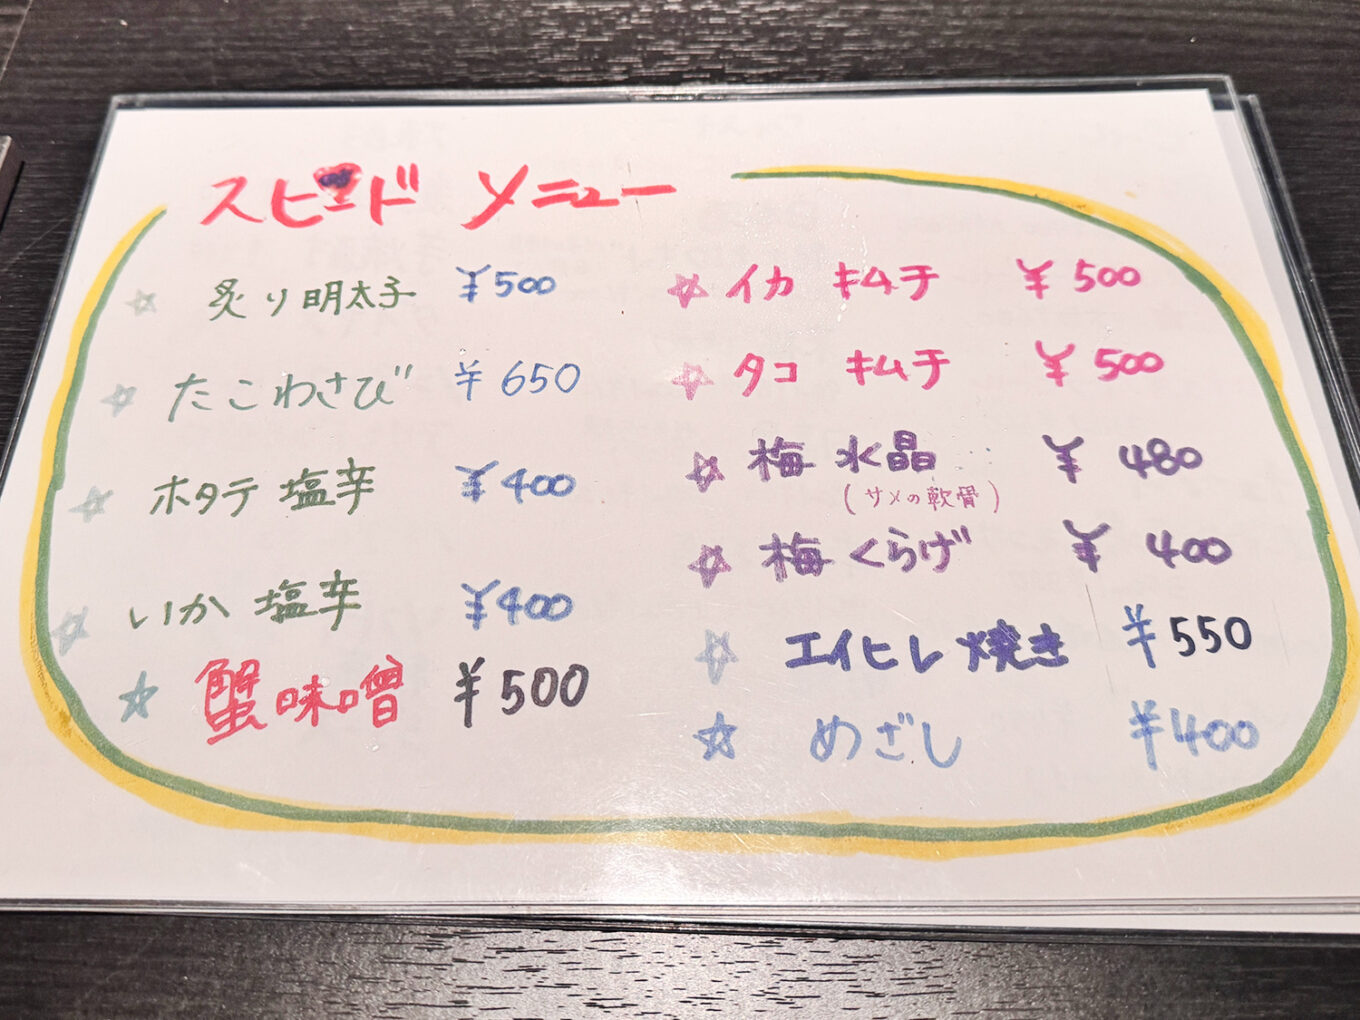 スピード メニュー
☆ 炙り明太子 ¥500
☆ たこわさび ¥650
☆ ホタテ 塩辛 ¥400
☆ いか 塩辛 ¥400
☆ 蟹味噌 ¥500
☆ イカ キムチ ¥500
☆ タコ キムチ ¥500
☆ 梅 水晶 ¥480
(サメの軟骨)
☆ 梅 くらげ ¥400
☆ エイヒレ焼き ¥550
☆ めざし ¥400